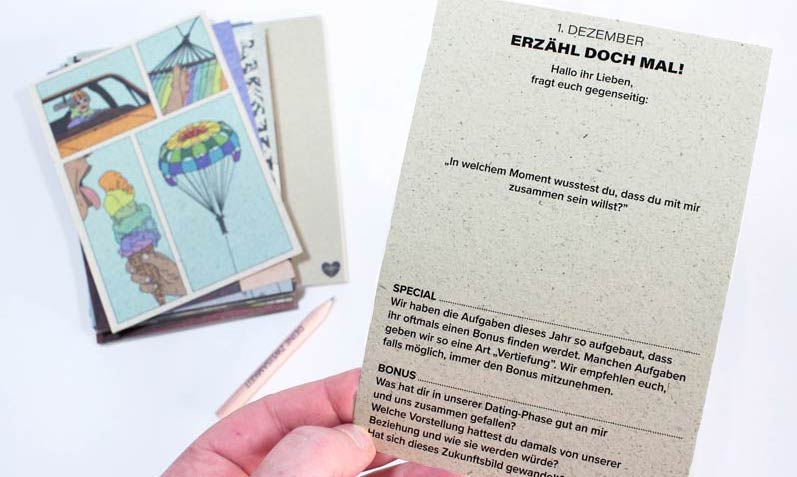 1. DEZEMBER
ERZÄHL DOCH MAL!
Hallo ihr Lieben,
fragt euch gegenseitig:
„In welchem Moment wusstest du, dass du mit mir
zusammen sein willst?"
SPECIAL
Wir haben die Aufgaben dieses Jahr so aufgebaut, dass
ihr oftmals einen Bonus finden werdet. Manchen Aufgaben
geben wir so eine Art „Vertiefung". Wir empfehlen euch,
falls möglich, immer den Bonus mitzunehmen.
BONUS
Was hat dir in unserer Dating-Phase gut an mir
und uns zusammen gefallen?
Welche Vorstellung hattest du damals von unserer
Beziehung und wie sie werden würde?
Hat sich dieses Zukunftsbild gewandelt?